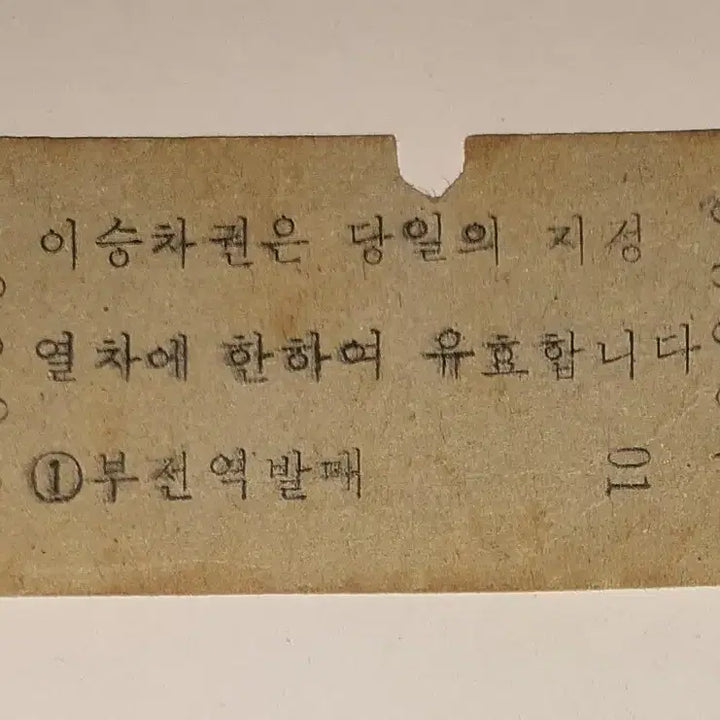 이승차권은 당일의 지성
열차에 한하여 유효합니다
①부전역발매
01